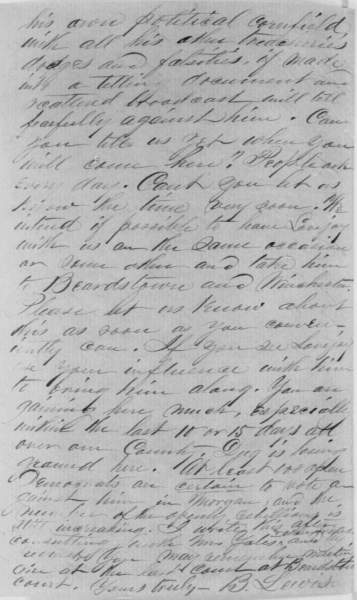 his own political cornfield
with all his other treacheries
dodges and falsities, if made
into a telling document and
scattered broadcast will tell
fearfully against him. Can
you tell us yet when you
will come here? People ask
every day. Cant you let us
know the time very soon. We
intend if possible to have Lovejoy
with us on the same occasion
or some other and take him
to Beardstown and Winchester.
Please let us know about
this as soon as you conven-
iently can. If you see Lovejoy
use your influence with him
to bring him along. You are
gaining here much, especially
within the last 10 or 15 days all
over our County. Dug is losing
ground here. At least 100 open
Democrats are certain to vote a-
gainst him in Morgan, and the
number of the openly
still increasing. I write this after
consulting with Mrs Yates, and
may remember
at the last court at Beardstown
court. Yours truly— B. Lewis